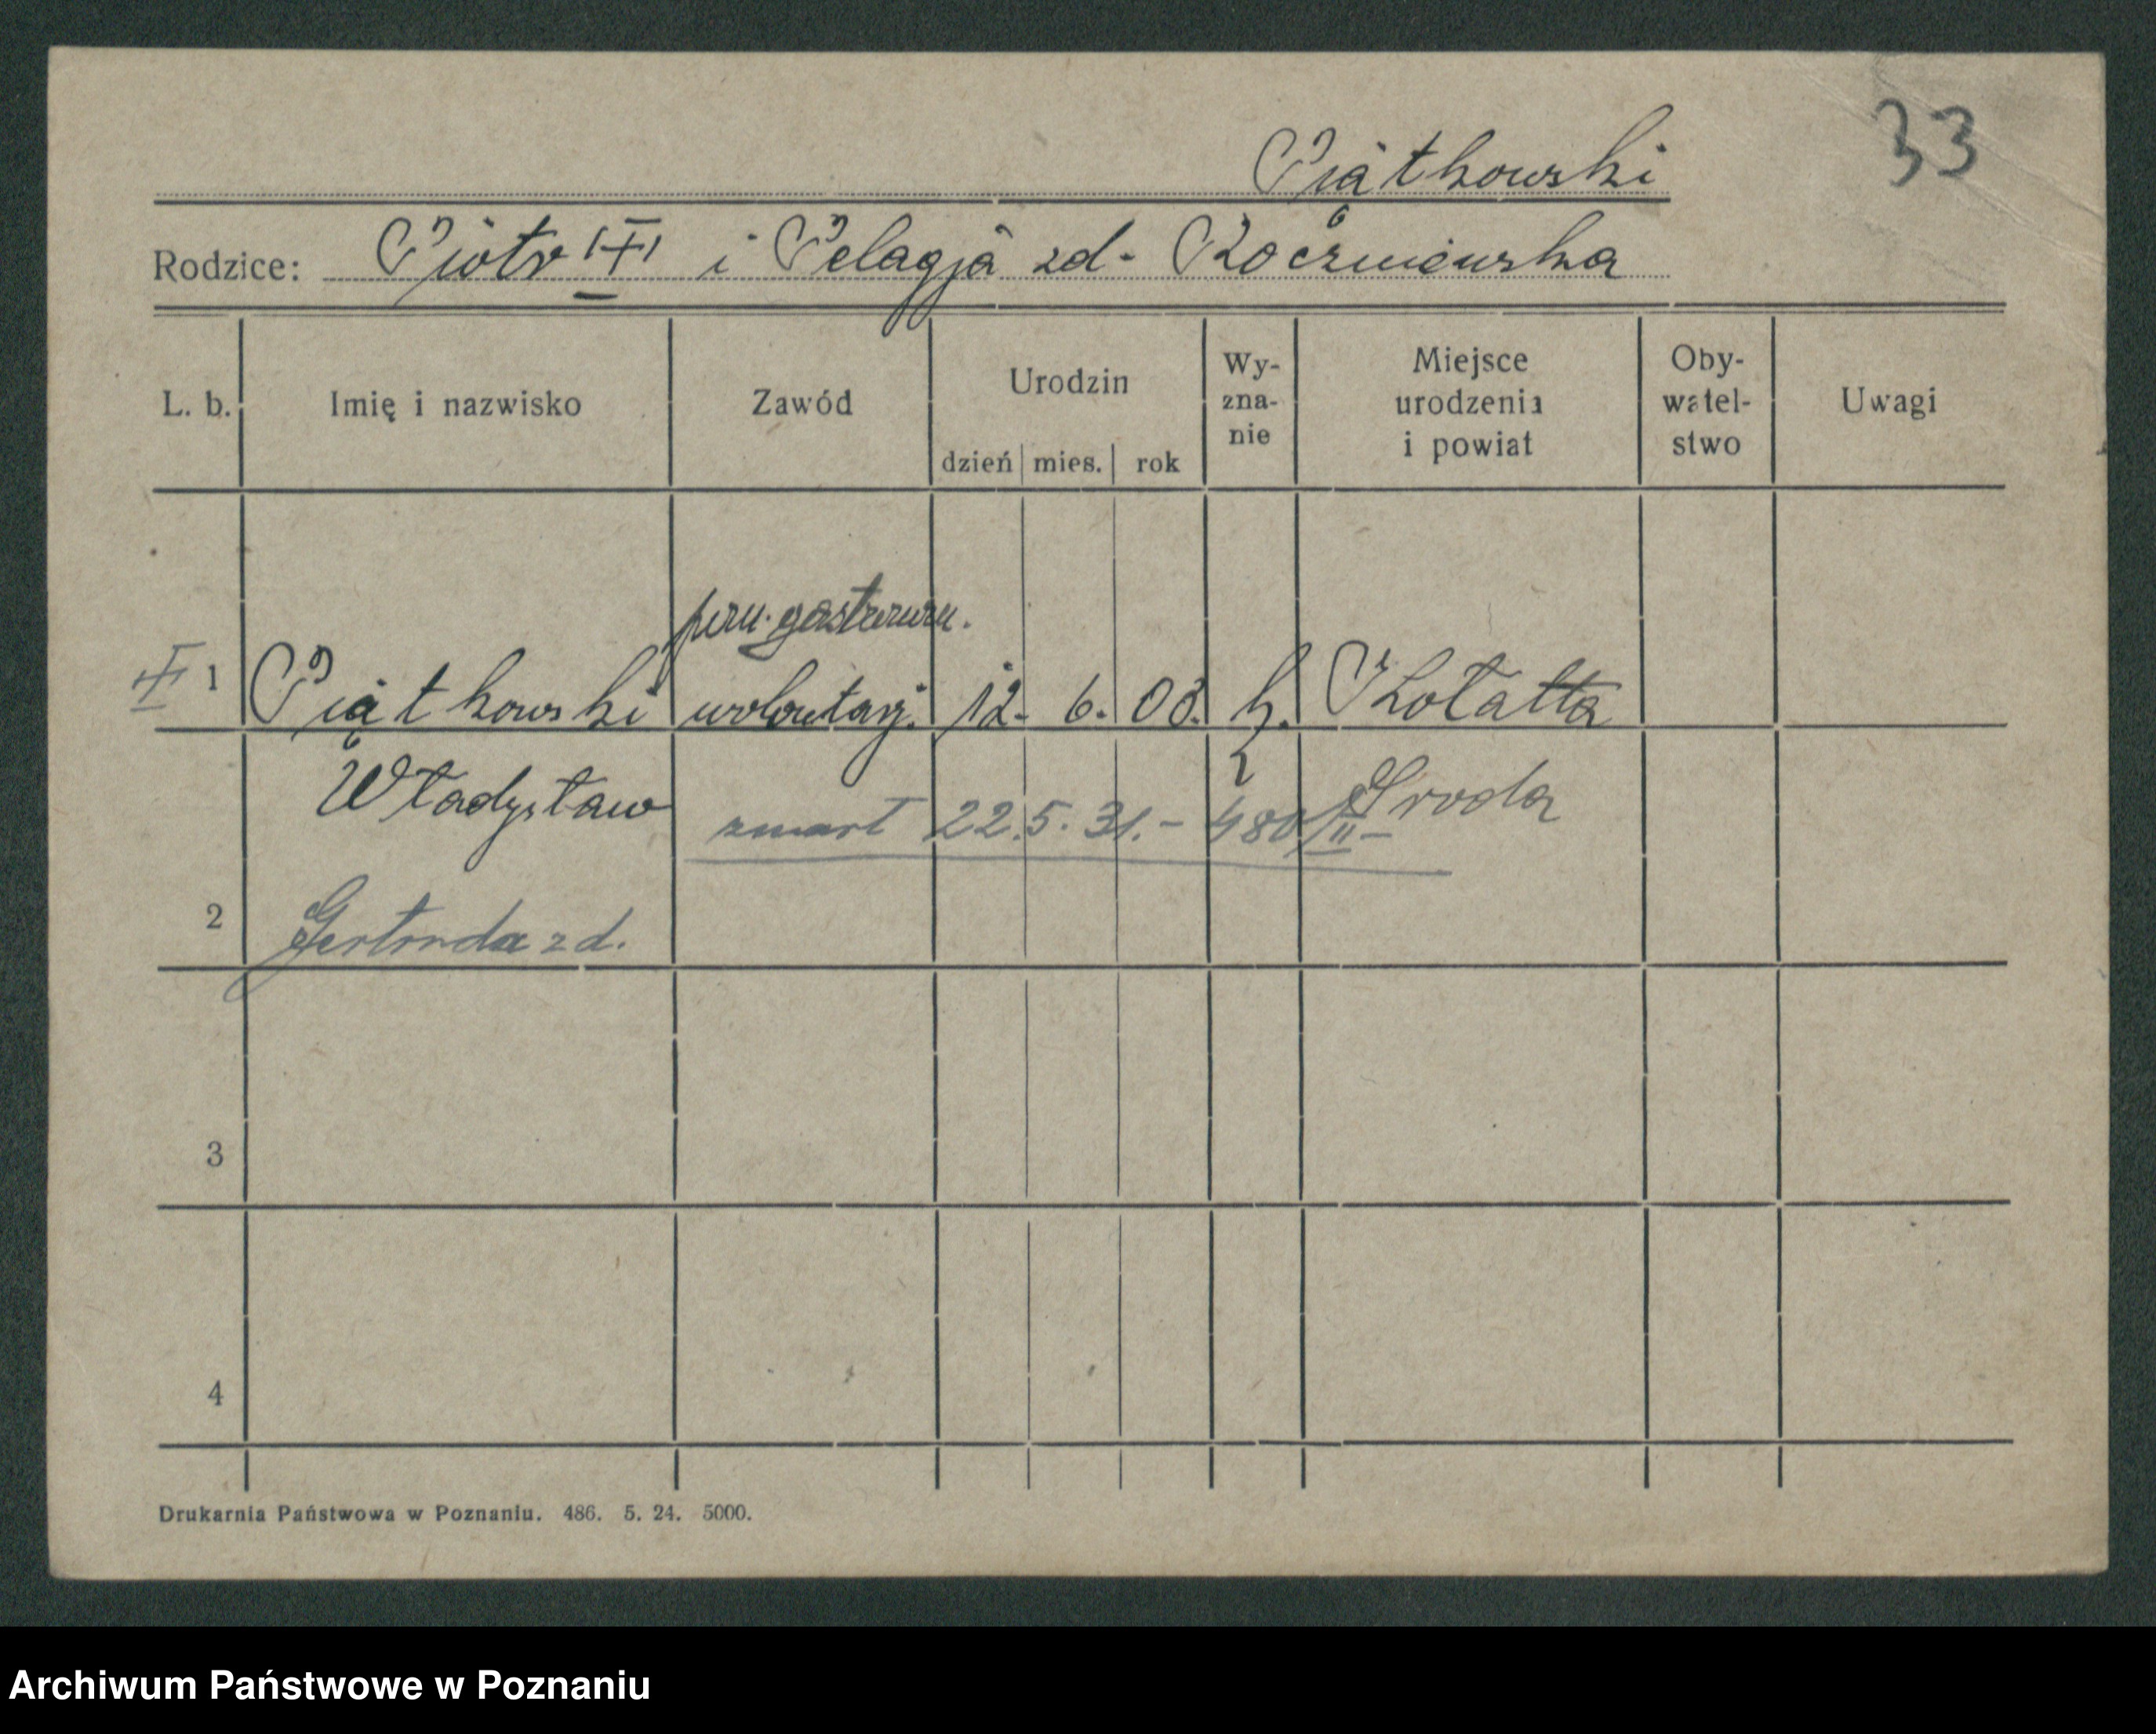 33
Piątkowski
Rodzice: Piotr i Pelagja zd.
L. b. Imię i nazwisko Zawód Urodzin dzień mies. rok Wy-zna-nie Miejsce urodzenia i powiat Oby-watel-stwo Uwagi
1 Piątkowski 12. 6. 08.
Władysław Środa
zmarł 22.5.31.- 480/II-
2 Gertruda zd.
3
4
Drukarnia Państwowa w Poznaniu. 486. 5. 24. 5000.
Archiwum Państwowe w Poznaniu